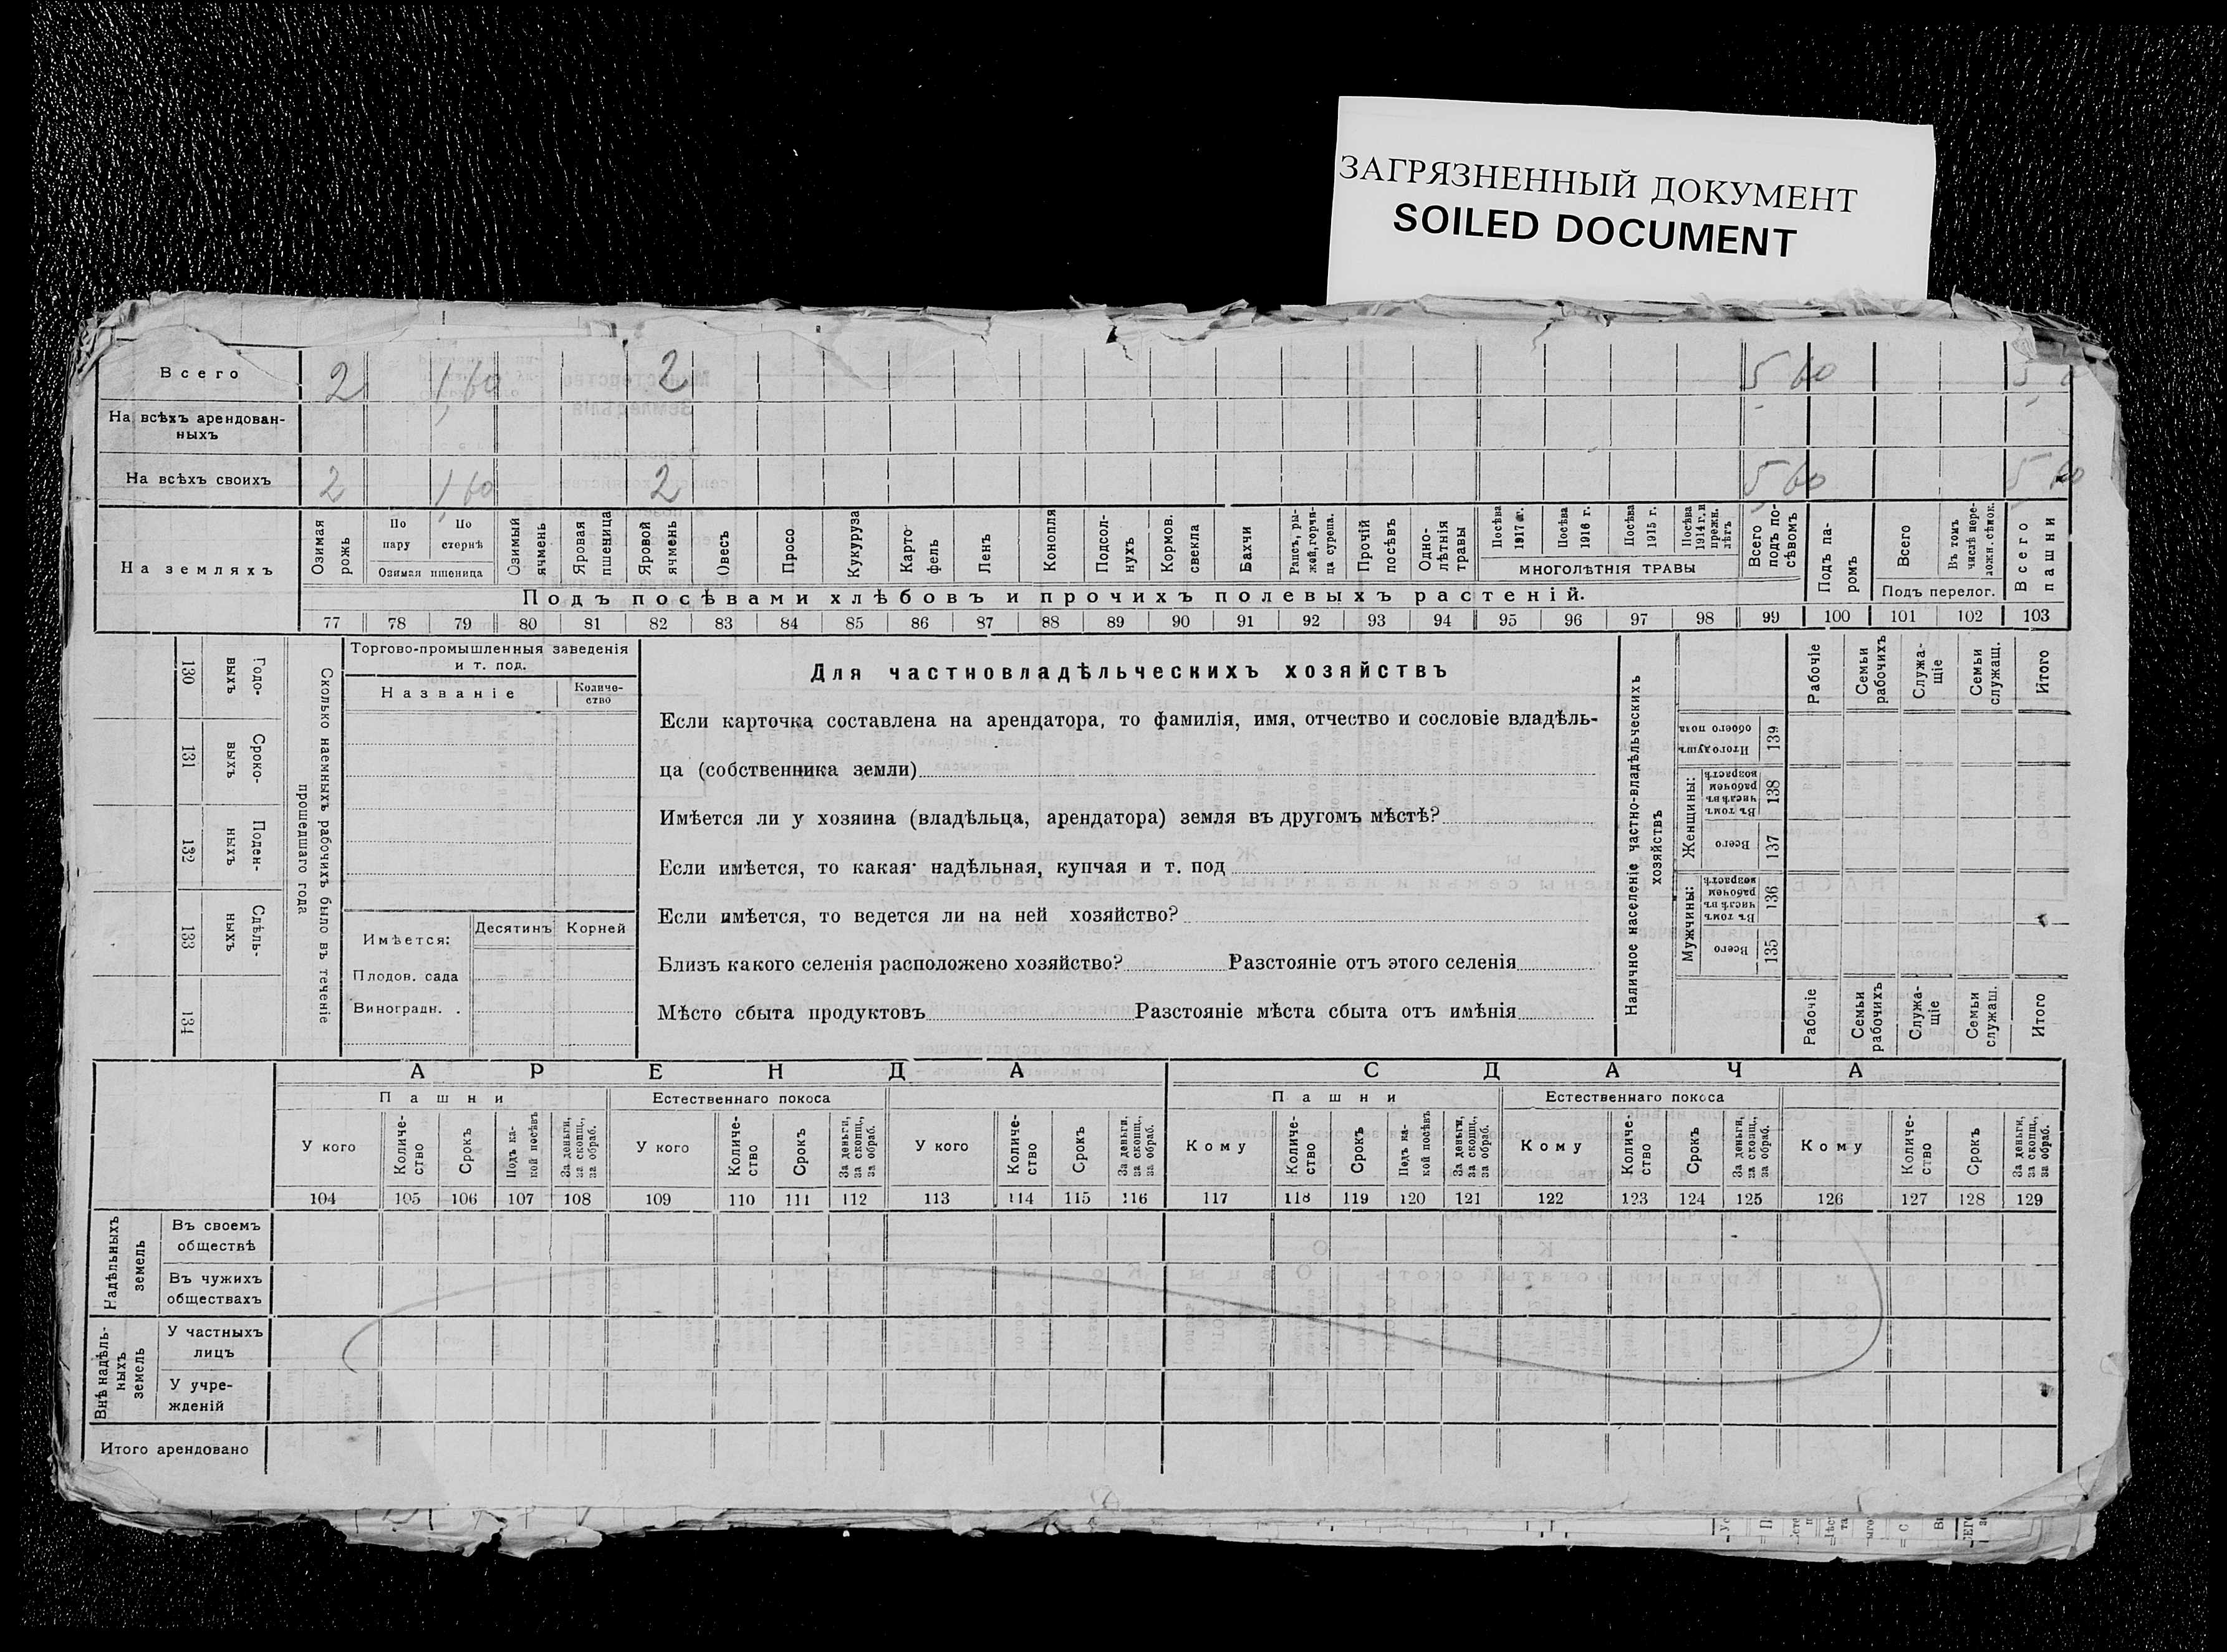 ЗАГРЯЗНЕННЫЙ ДОКУМЕНТ
SOILED DOCUMENT
Всего 2 1,60 2 5 60
На всѣхъ арендован-
ныхъ
На всѣхъ своихъ 2 1,60 2 5 60 5 60
На земляхъ
Озимая рожь
По пару
По стернѣ
Озимая пшеница
Озимый ячмень
Яровая пшеница
Яровой ячмень
Овесъ
Просо
Кукуруза
Карто-
фель
Ленъ
Конопля
Подсол-
нухъ
Кормов. свекла
Бахчи
Рапсъ, ры-
жей, горчи-
ца сурепа.
Прочій посѣвъ
Одно-
лѣтнія травы
Посѣва 1917 г.
Посѣва 1916 г.
Посѣва 1915 г.
Посѣва 1914 г. и прежн. лѣтъ
МНОГОЛѢТНІЯ ТРАВЫ
Всего подъ по-
сѣвомъ
Подъ па-
ромъ
Всего
Въ томъ числѣ пере-
ложн. сѣнок.
Подъ перелог.
Всего пашни
Подъ посѣвами хлѣбовъ и прочихъ полевыхъ растеній.
77 78 79 80 81 82 83 84 85 86 87 88 89 90 91 92 93 94 95 96 97 98 99 100 101 102 103
130 Годо-
выхъ
131 Сроко-
выхъ
132 Поден-
ныхъ
133 Сдѣль-
ныхъ
134
Сколько наемныхъ рабочихъ было въ теченіе
прошедшаго года
Торгово-промышленныя заведенія
и т. под.
Названіе
Количе-
ство
Имѣется:
Десятинъ
Корней
Плодов. сада
Виноградн. .
Для частновладѣльческихъ хозяйствъ
Если карточка составлена на арендатора, то фамилія, имя, отчество и сословіе владѣль-
ца (собственника земли)
Имѣется ли у хозяина (владѣльца, арендатора) земля въ другомъ мѣстѣ?
Если имѣется, то какая· надѣльная, купчая и т. под
Если имѣется, то ведется ли на ней хозяйство?
Близъ какого селенія расположено хозяйство? Разстояніе отъ этого селенія
Мѣсто сбыта продуктовъ Разстояніе мѣста сбыта отъ имѣнія
Наличное населеніе частно-владѣльческихъ
хозяйствъ
Рабочіе
Семьи рабочихъ
Служа-
щіе
Семьи служащ.
Итого
Итого душъ обоего пола 139
Женщины:
Въ томъ числѣ въ рабочемъ возрастѣ 138
Всего 137
Мужчины:
Въ томъ числѣ въ рабочемъ возрастѣ 136
Всего 135
Рабочіе
Семьи рабочихъ
Служа-
щіе
Семьи служащ.
Итого
АРЕНДА
СДАЧА
Пашни
Естественнаго покоса
Пашни
Естественнаго покоса
У кого
Количе-
ство
Срокъ
Подъ ка-
кой посѣвъ
За деньги, за скопщ., за обраб.
У кого
Количе-
ство
Срокъ
За деньги, за скопщ., за обраб.
У кого
Количе-
ство
Срокъ
За деньги, за скопщ., за обраб.
Кому
Количе-
ство
Срокъ
Подъ ка-
кой посѣвъ
За деньги, за скопщ., за обраб.
Кому
Количе-
ство
Срокъ
За деньги, за скопщ., за обраб.
Кому
Количе-
ство
Срокъ
За деньги, за скопщ., за обраб.
104 105 106 107 108 109 110 111 112 113 114 115 116 117 118 119 120 121 122 123 124 125 126 127 128 129
Надѣльныхъ
земель
Въ своемъ
обществѣ
Въ чужихъ
обществахъ
Внѣ надѣль-
ныхъ
земель
У частныхъ
лицъ
У учре-
жденій
Итого арендовано